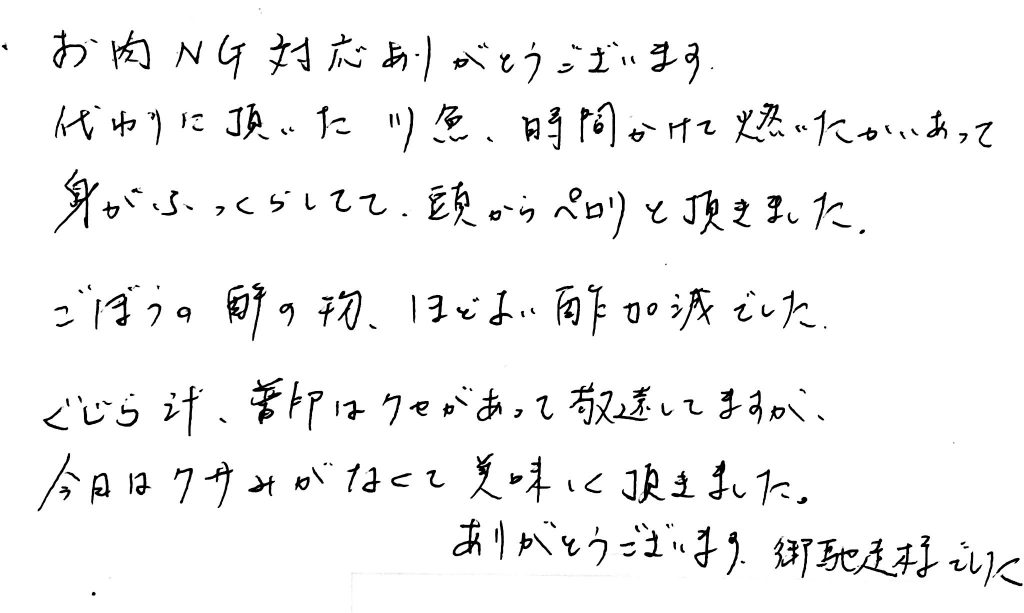 お肉NG対応ありがとうございます.
代わりに頂いた川魚、時間かけて燃いたかいあって
身がふっくらしてて、頭からペロリと頂きました。
ごぼうの酢の物、ほどよい酢加減でした.
くじら汁、普段はクセがあって敬遠してますが、
今日はクサみがなくて美味しく頂きました。
ありがとうございます. 御馳走様でした